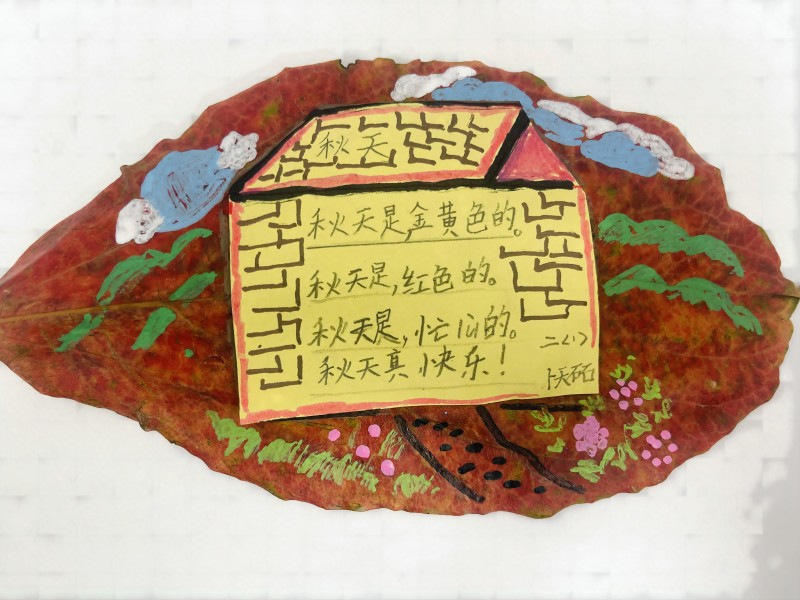 秋天
秋天是,金黄色的。
秋天是,红色的。
秋天是,忙忙的。
秋天真快乐!
二(1)